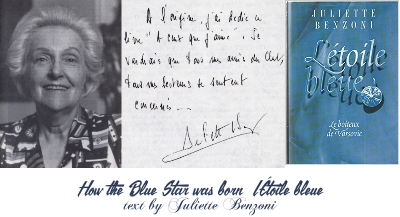 A l'origine, j'ai dédié ce
livre "A ceux que j'aime". Je
voudrais que tous mes amis du Club,
tous mes lecteurs se sentent
concernés...
JULIETTE
BENZONI
L'étoile
bleue
Le boiteux
de Varsovie
How the Blue Star was born L'Étoile bleue
text by Juliette Benzoni